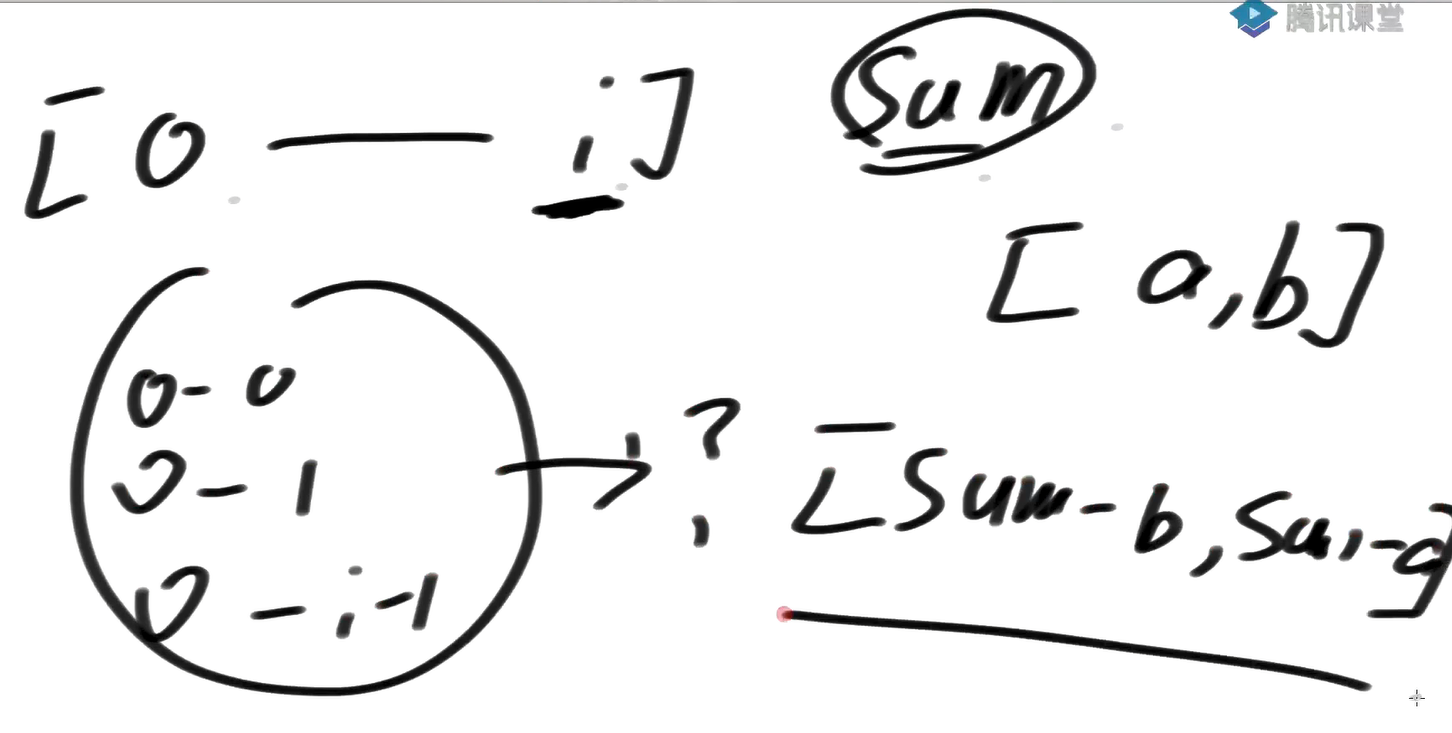 腾讯课堂
[0 — i] Sum
[a,b]
0-0
0-1
0-i-1
→ ?
[Sum-b, Sum-a]